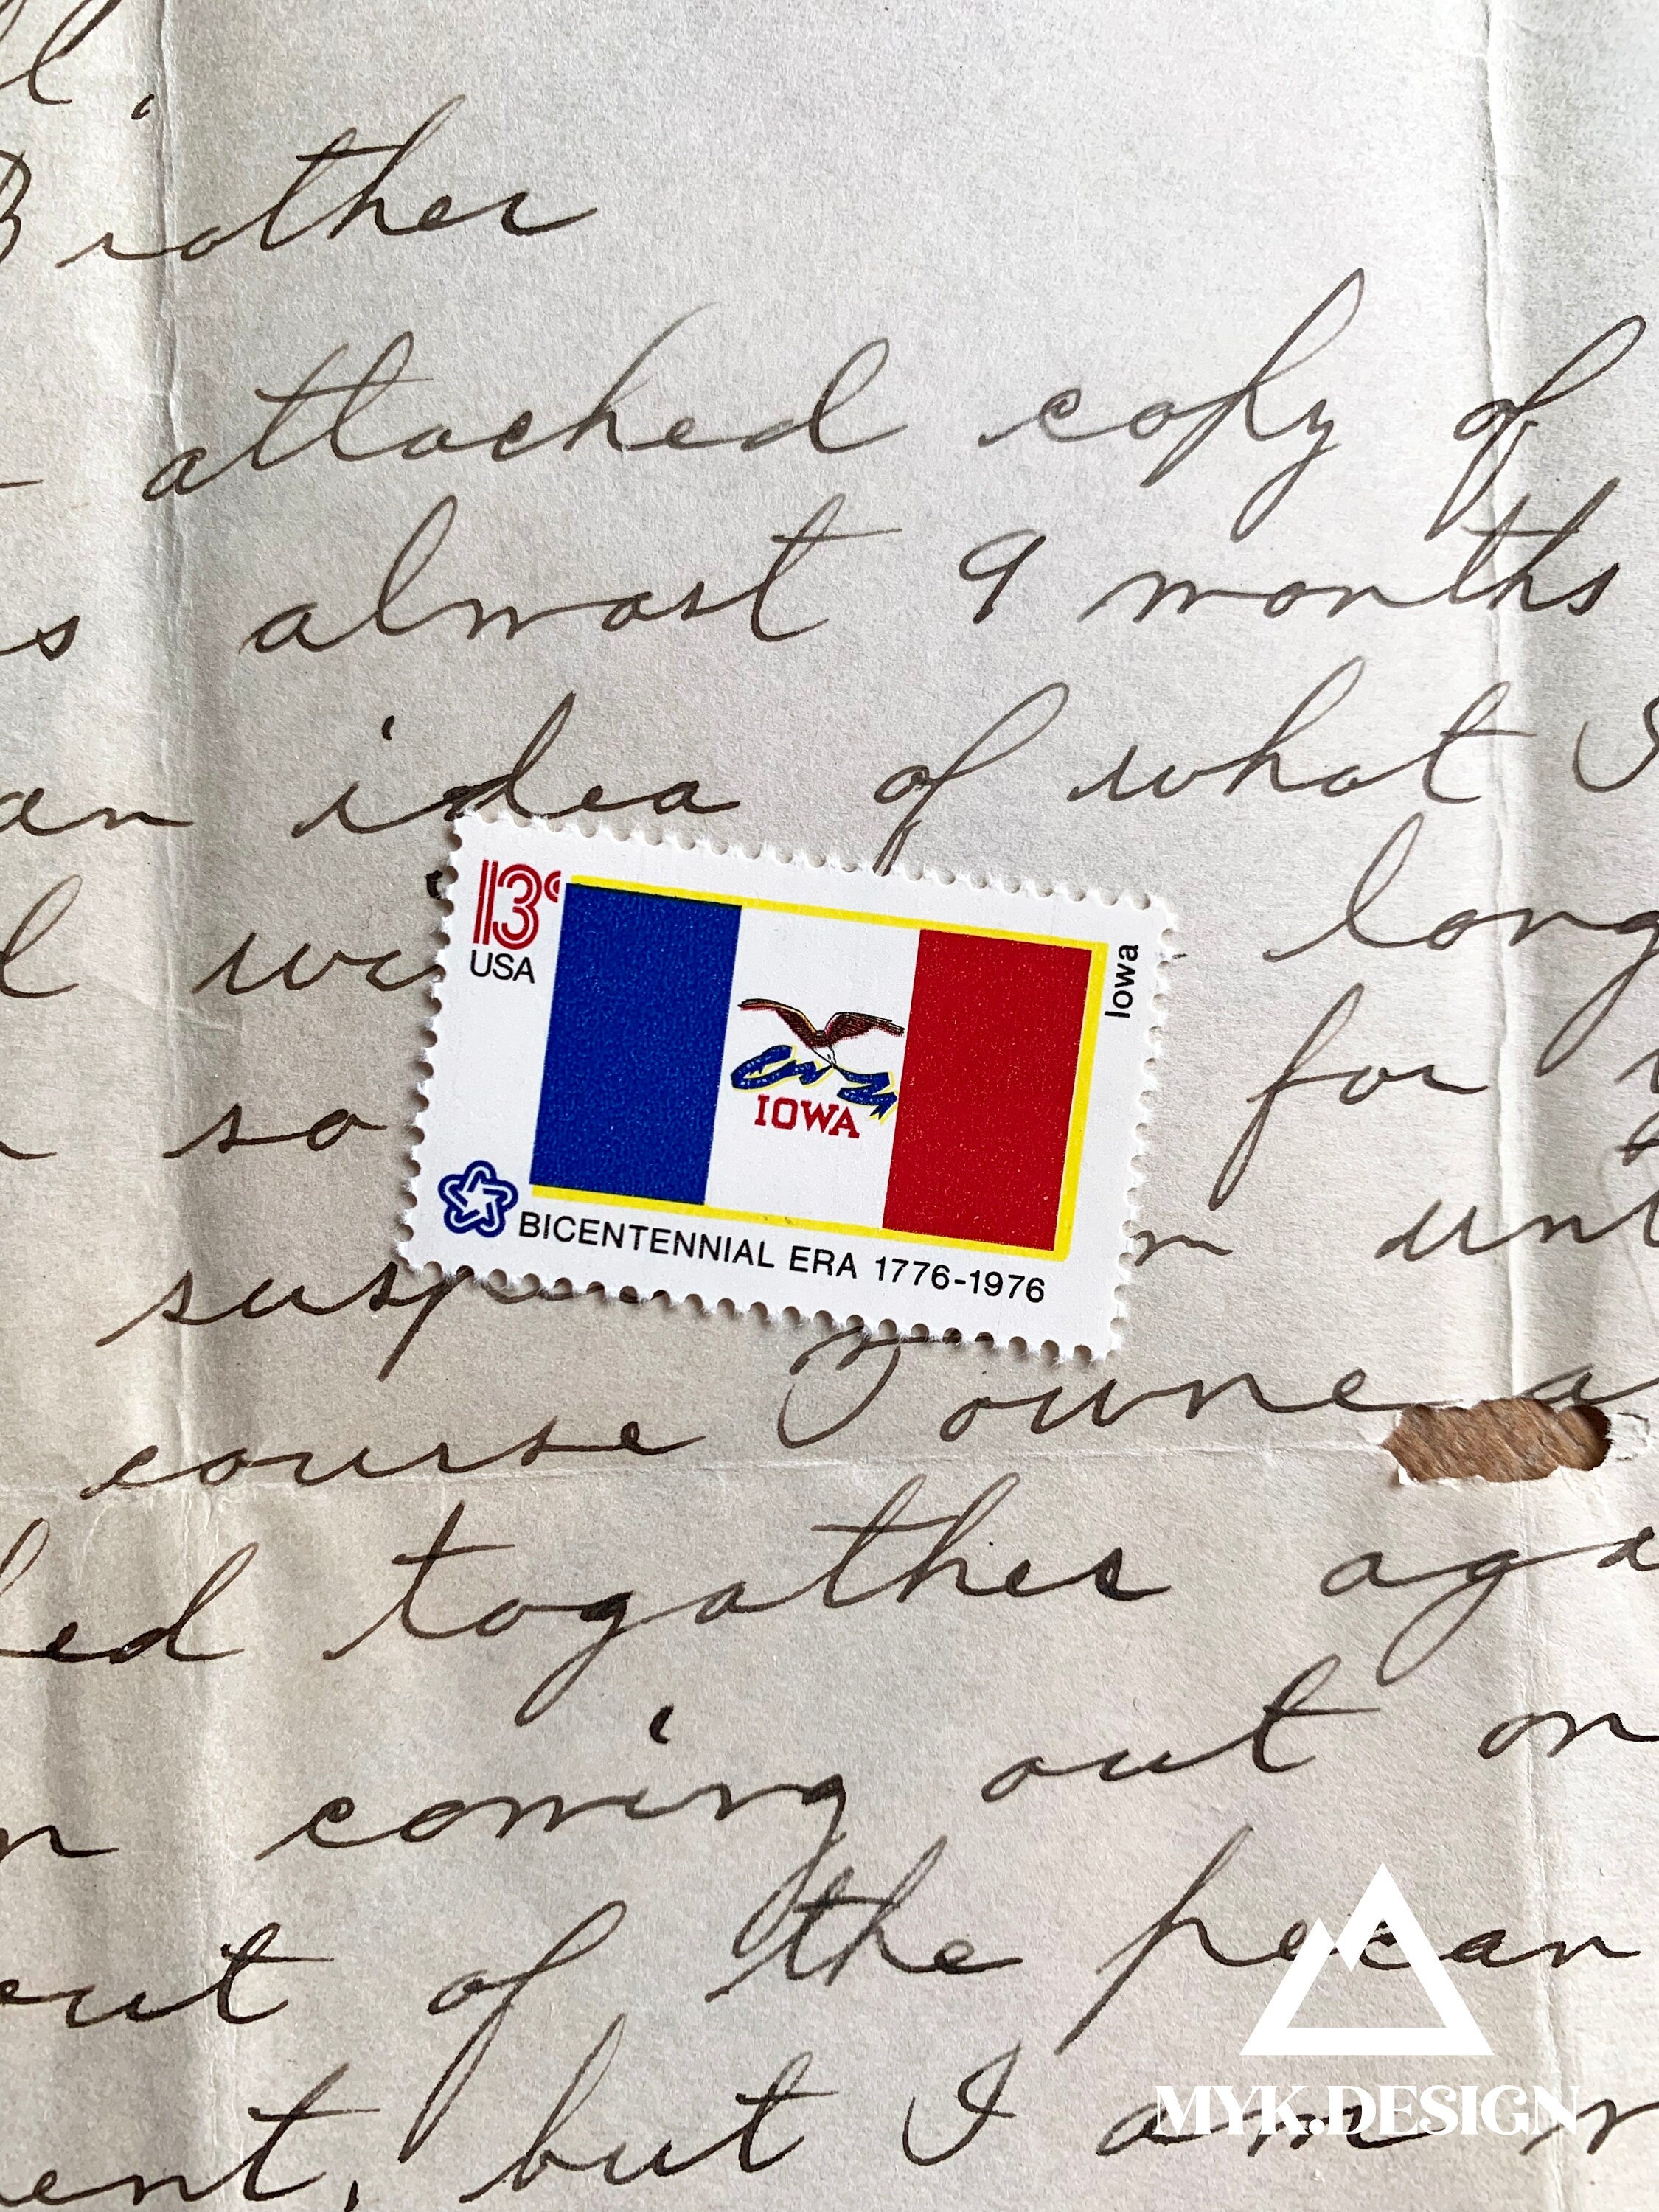 Brother
attached copy of
almost 9 months
an idea of what I
long
so for
susp
course I owned
together
coming out on
out of the pecan
but I am
13c
USA
Iowa
IOWA
BICENTENNIAL ERA 1776-1976
MYK.DESIGN